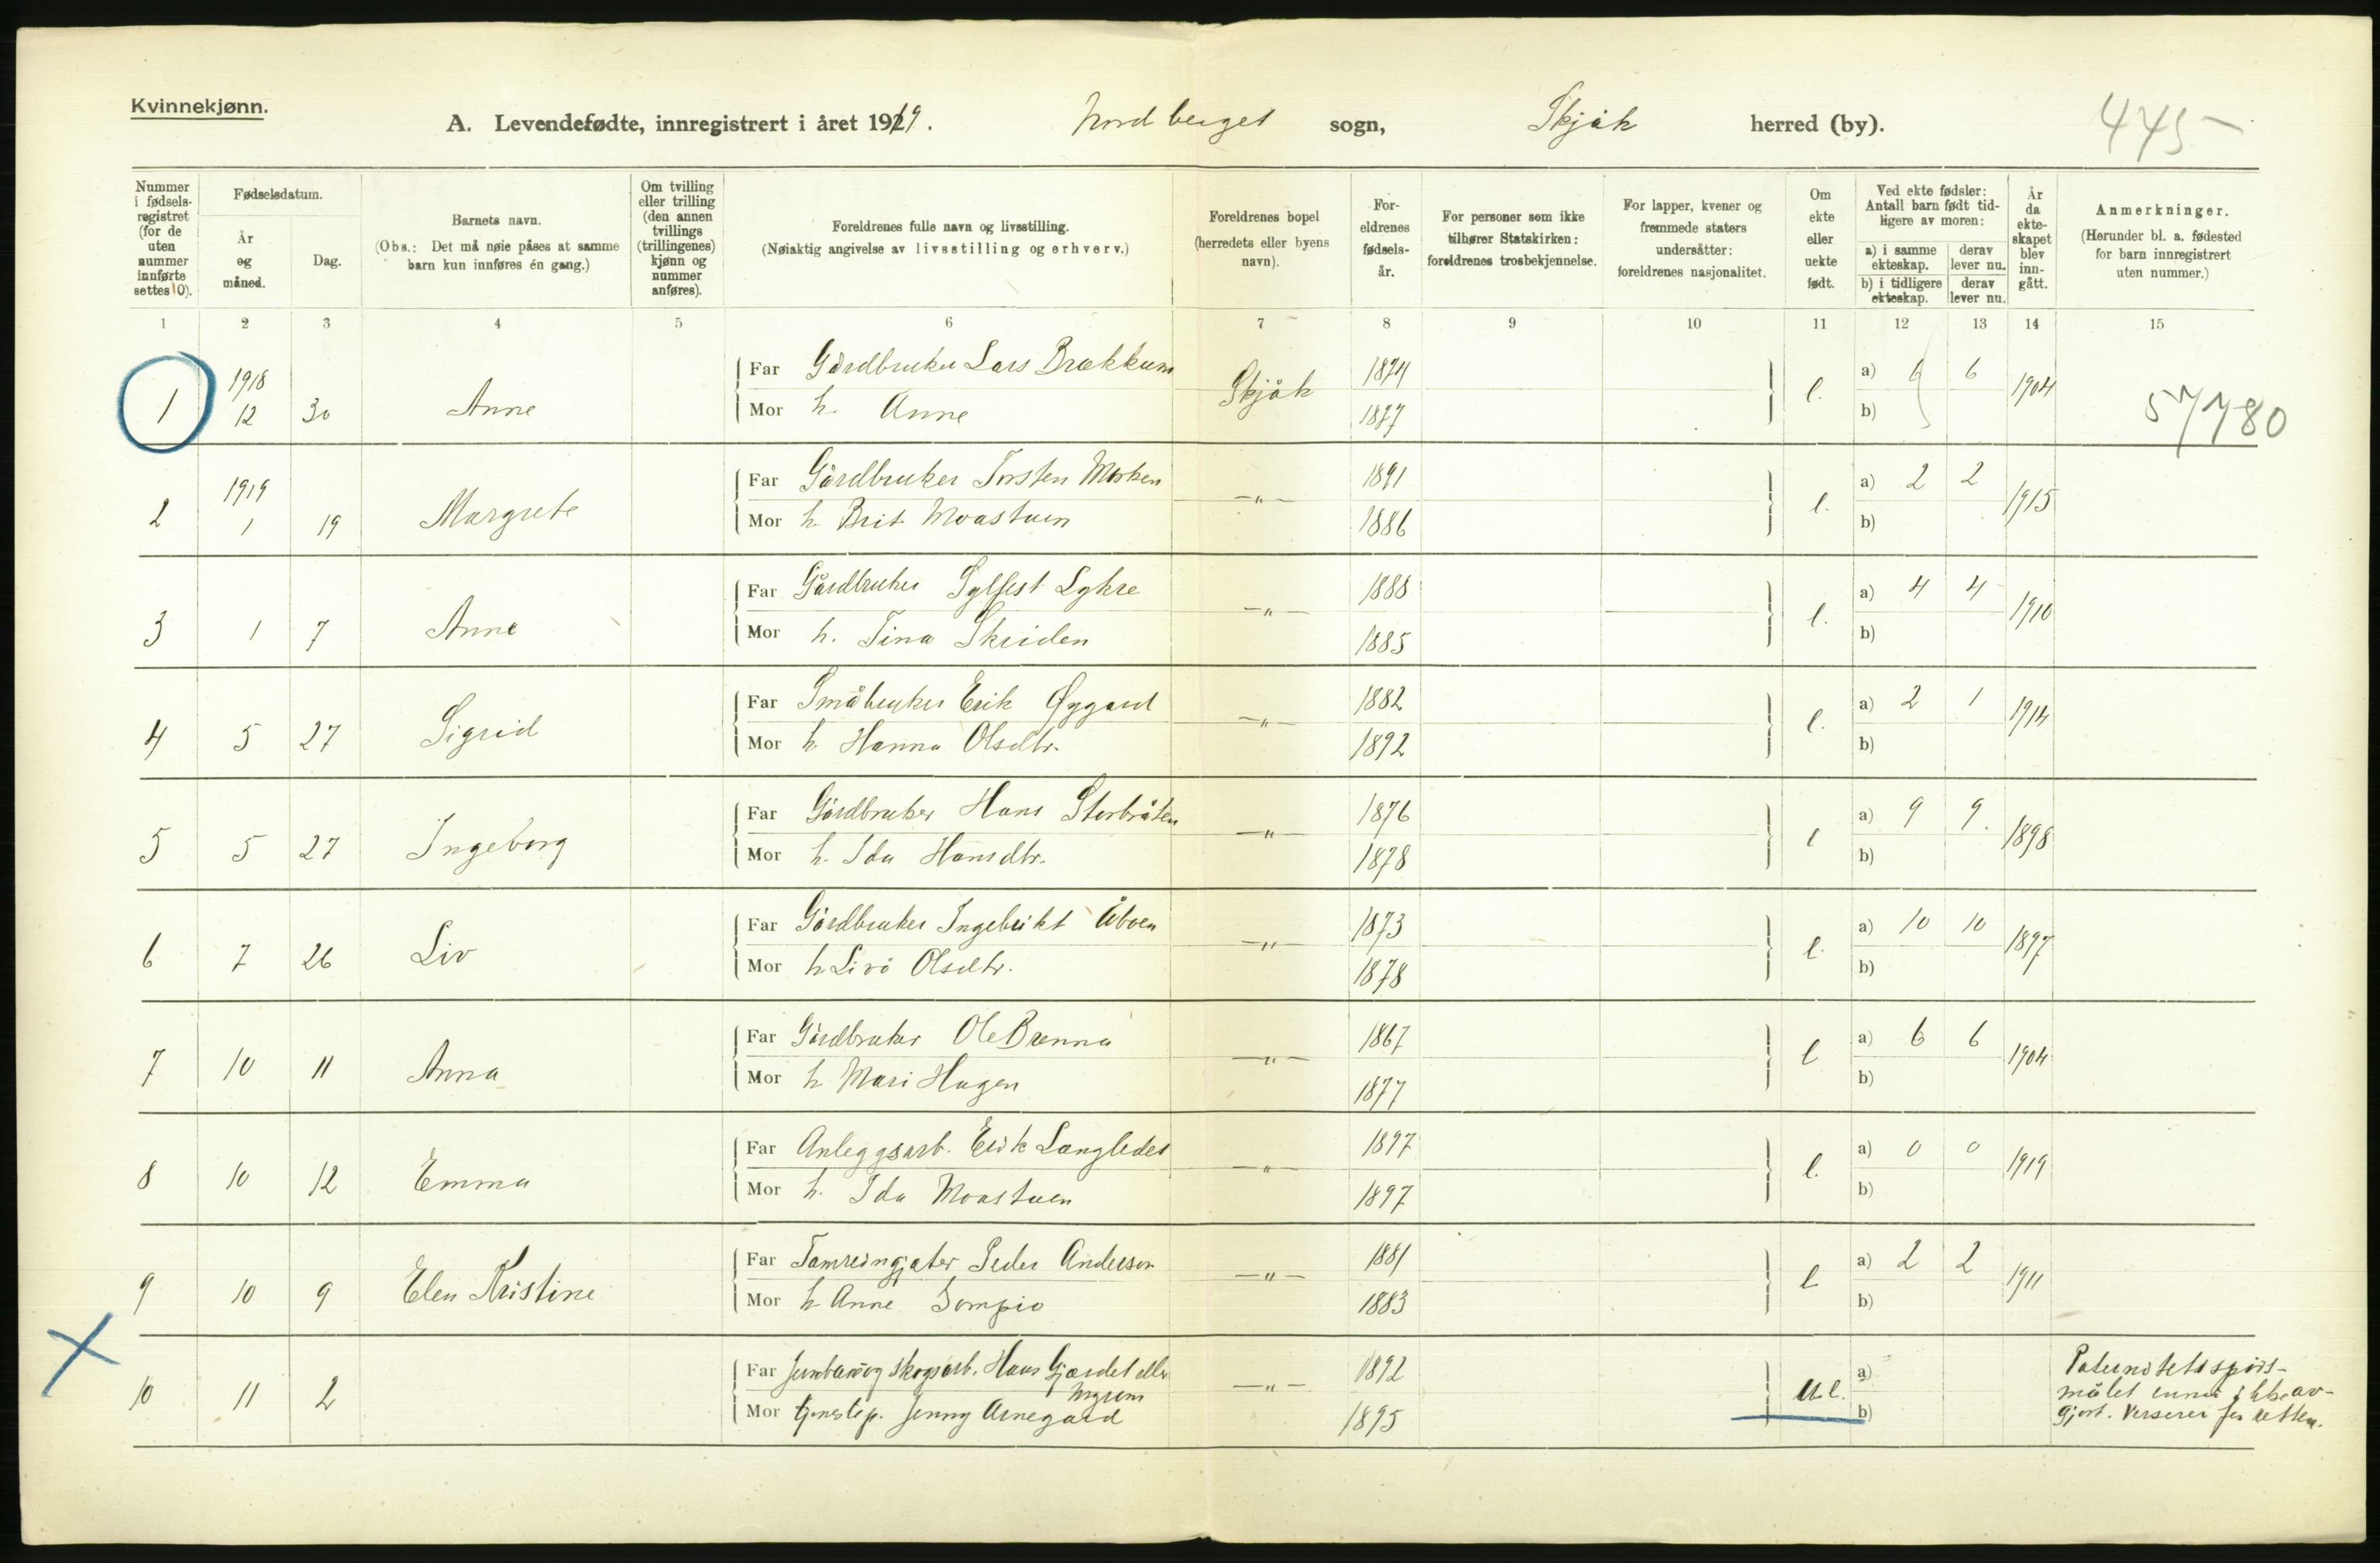 Kvinnekjønn.
A. Levendefødte, innregistrert i året 1919. Nordberget sogn, Skjåk herred (by). 445
Nummer i fødselsregistret (for de uten nummer innførte settes 0).
Fødselsdatum.
År og måned.
Dag.
Barnets navn.
(Obs.: Det må nøie påses at samme barn kun innføres én gang.)
Om tvilling eller trilling (den annen tvillings (trillingenes) kjønn og nummer anføres).
Foreldrenes fulle navn og livsstilling.
(Nøiaktig angivelse av livsstilling og erhverv.)
Foreldrenes bopel (herredets eller byens navn).
Foreldrenes fødselsår.
For personer som ikke tilhører Statskirken: foreldrenes trosbekjennelse.
For lapper, kvener og fremmede staters undersåtter: foreldrenes nasjonalitet.
Om ekte eller uekte født.
Ved ekte fødsler: Antall barn født tidligere av moren:
a) i samme ekteskap. derav lever nu.
b) i tidligere ekteskap. derav lever nu.
År da ekteskapet blev inngått.
Anmerkninger.
(Herunder bl. a. fødested for barn innregistrert uten nummer.)
1 2 3 4 5 6 7 8 9 10 11 12 13 14 15
1 1918 12 30 Anne Far Gårdbruker Lars Brækkum Skjåk 1874 e. a) 6 6 1904 57780
Mor h. Anne 1877 b)
2 1919 1 19 Margrete Far Gårdbruker Torsten Morken —"— 1891 e. a) 2 2 1915
Mor h. Brit Moastuen 1886 b)
3 1 7 Anne Far Gårdbruker Sylfest Lykre —"— 1888 e. a) 4 4 1910
Mor h. Tina Skriden 1885 b)
4 5 27 Sigrid Far Småbruker Erik Øygard —"— 1882 e. a) 2 1 1914
Mor h Hanna Olsdtr. 1892 b)
5 5 27 Ingeborg Far Gårdbruker Hans Storbråten —"— 1876 e a) 9 9. 1898
Mor h. Ida Hansdtr. 1878 b)
6 7 26 Liv Far Gårdbruker Ingebrikt Åboen —"— 1873 e. a) 10 10 1897
Mor h Livö Olsdtr. 1878 b)
7 10 11 Anna Far Gårdbruker Ole Brenna —"— 1867 e a) 6 6 1904
Mor h Mari Hagen 1877 b)
8 10 12 Emma Far Anleggsarb. Erik Langledet —"— 1897 e. a) 0 0 1919
Mor h. Ida Moastuen 1897 b)
9 10 9 Elen Kristine Far Tamreingjæter Peder Anderson —"— 1881 e a) 2 2 1911
Mor h Anne Sompio 1883 b)
10 11 2 Far Jernban og skogsarb. Hans Gjærdet eller Myrum —"— 1892 u.e. a) Paternitetsspørs-
Mor tjenestep. Jenny Arnegaard 1895 b) målet ennu ikke av-
gjort. Verserer for retten.